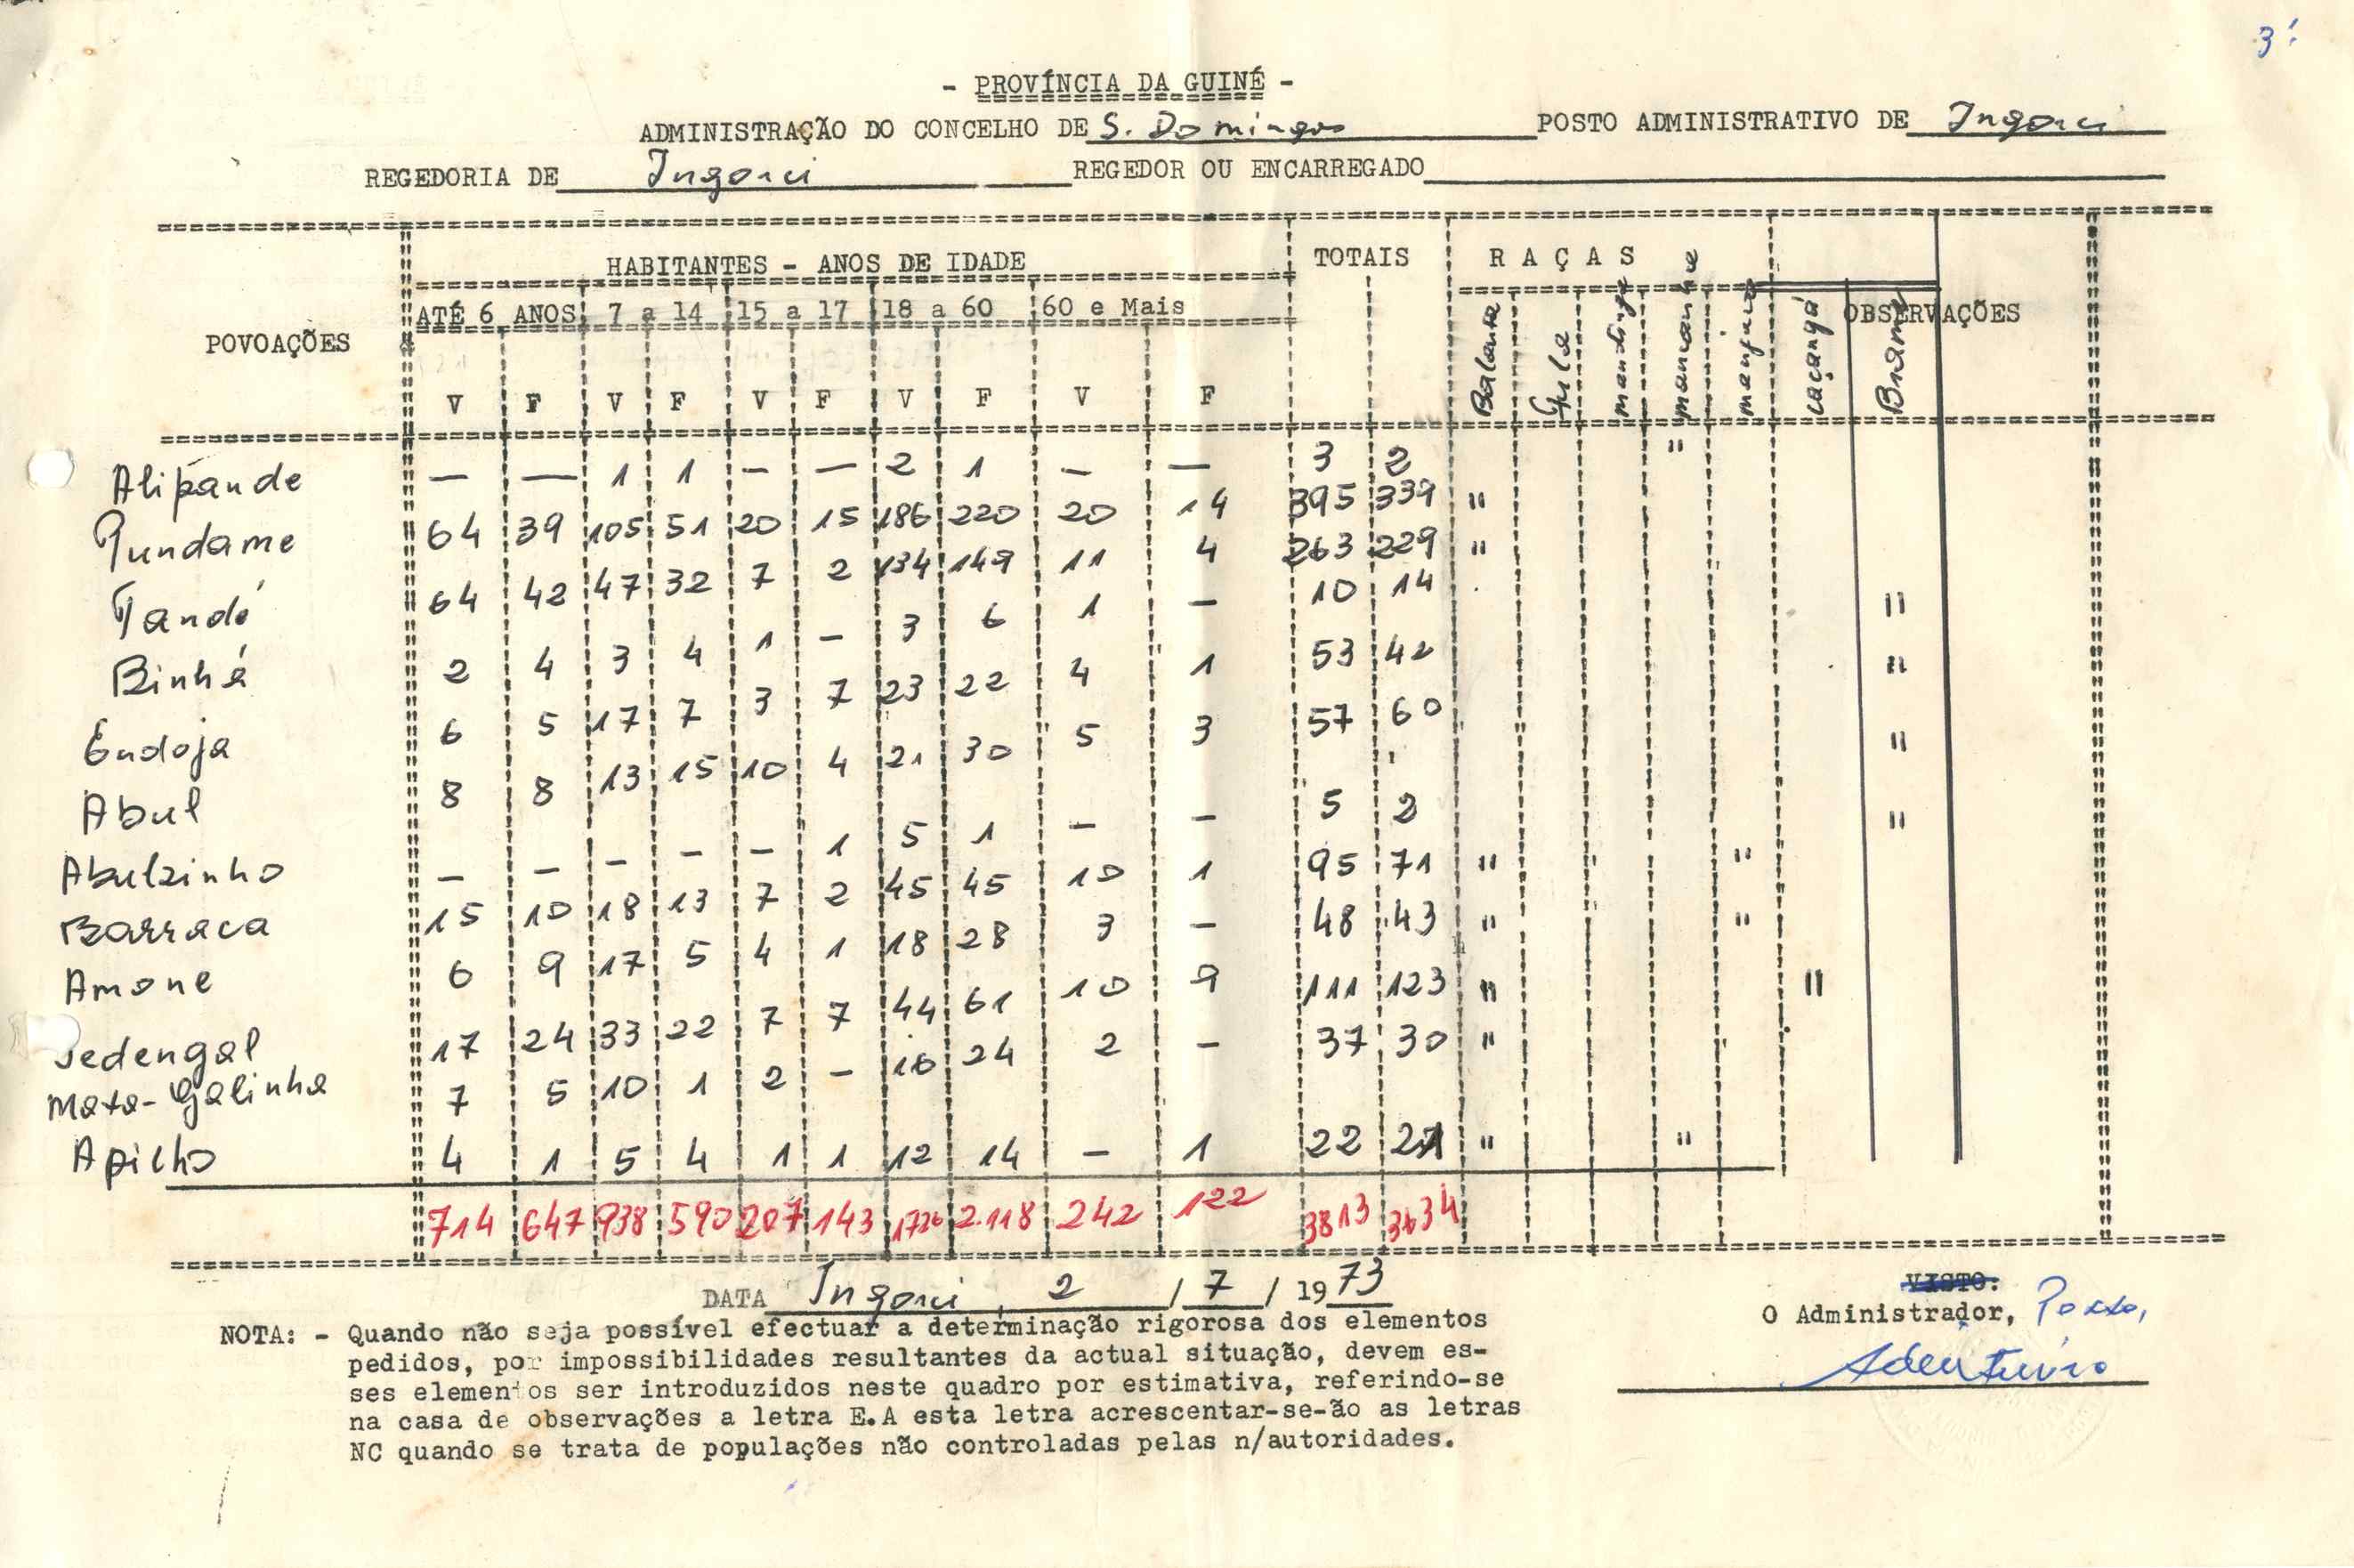 3ª
- PROVÍNCIA DA GUINÉ -
ADMINISTRAÇÃO DO CONCELHO DE S. Domingos POSTO ADMINISTRATIVO DE Ingorei
REGEDORIA DE Ingorei REGEDOR OU ENCARREGADO
POVOAÇÕES HABITANTES - ANOS DE IDADE TOTAIS RAÇAS OBSERVAÇÕES
ATÉ 6 ANOS 7 a 14 15 a 17 18 a 60 60 e Mais
Balanta Fula mandinga mancanha manjaco caçangá Brame
V F V F V F V F V F
Alipande — — 1 1 — — 2 1 — — 3 2 "
Gundame 64 39 105 51 20 15 186 220 20 14 395 339 "
Tandé 64 42 47 32 7 2 134 149 11 4 263 229 "
Binhá 2 4 3 4 1 — 3 6 1 — 10 14 "
Endoja 6 5 17 7 3 7 23 22 4 1 53 42 "
Abul 8 8 13 15 10 4 21 30 5 3 57 60 "
Abulzinho — — — — — 1 5 1 — — 5 2 "
Barraca 15 10 18 13 7 2 45 45 10 1 95 71 " "
Amone 6 9 17 5 4 1 18 28 3 — 48 43 " "
Sedengal 17 24 33 22 7 7 44 61 10 9 111 123 " "
Mata-Galinha 7 5 10 1 2 — 16 24 2 — 37 30 "
Apilho 4 1 5 4 1 1 12 14 — 1 22 21 " "
714 647 938 590 207 143 1726 2.118 242 122 3813 3634
DATA Ingorei, 2 / 7 / 1973
VISTO:
O Administrador, Posto,
NOTA: - Quando não seja possível efectuar a determinação rigorosa dos elementos
pedidos, por impossibilidades resultantes da actual situação, devem es-
ses elementos ser introduzidos neste quadro por estimativa, referindo-se
na casa de observações a letra E.A esta letra acrescentar-se-ão as letras
NC quando se trata de populações não controladas pelas n/autoridades.